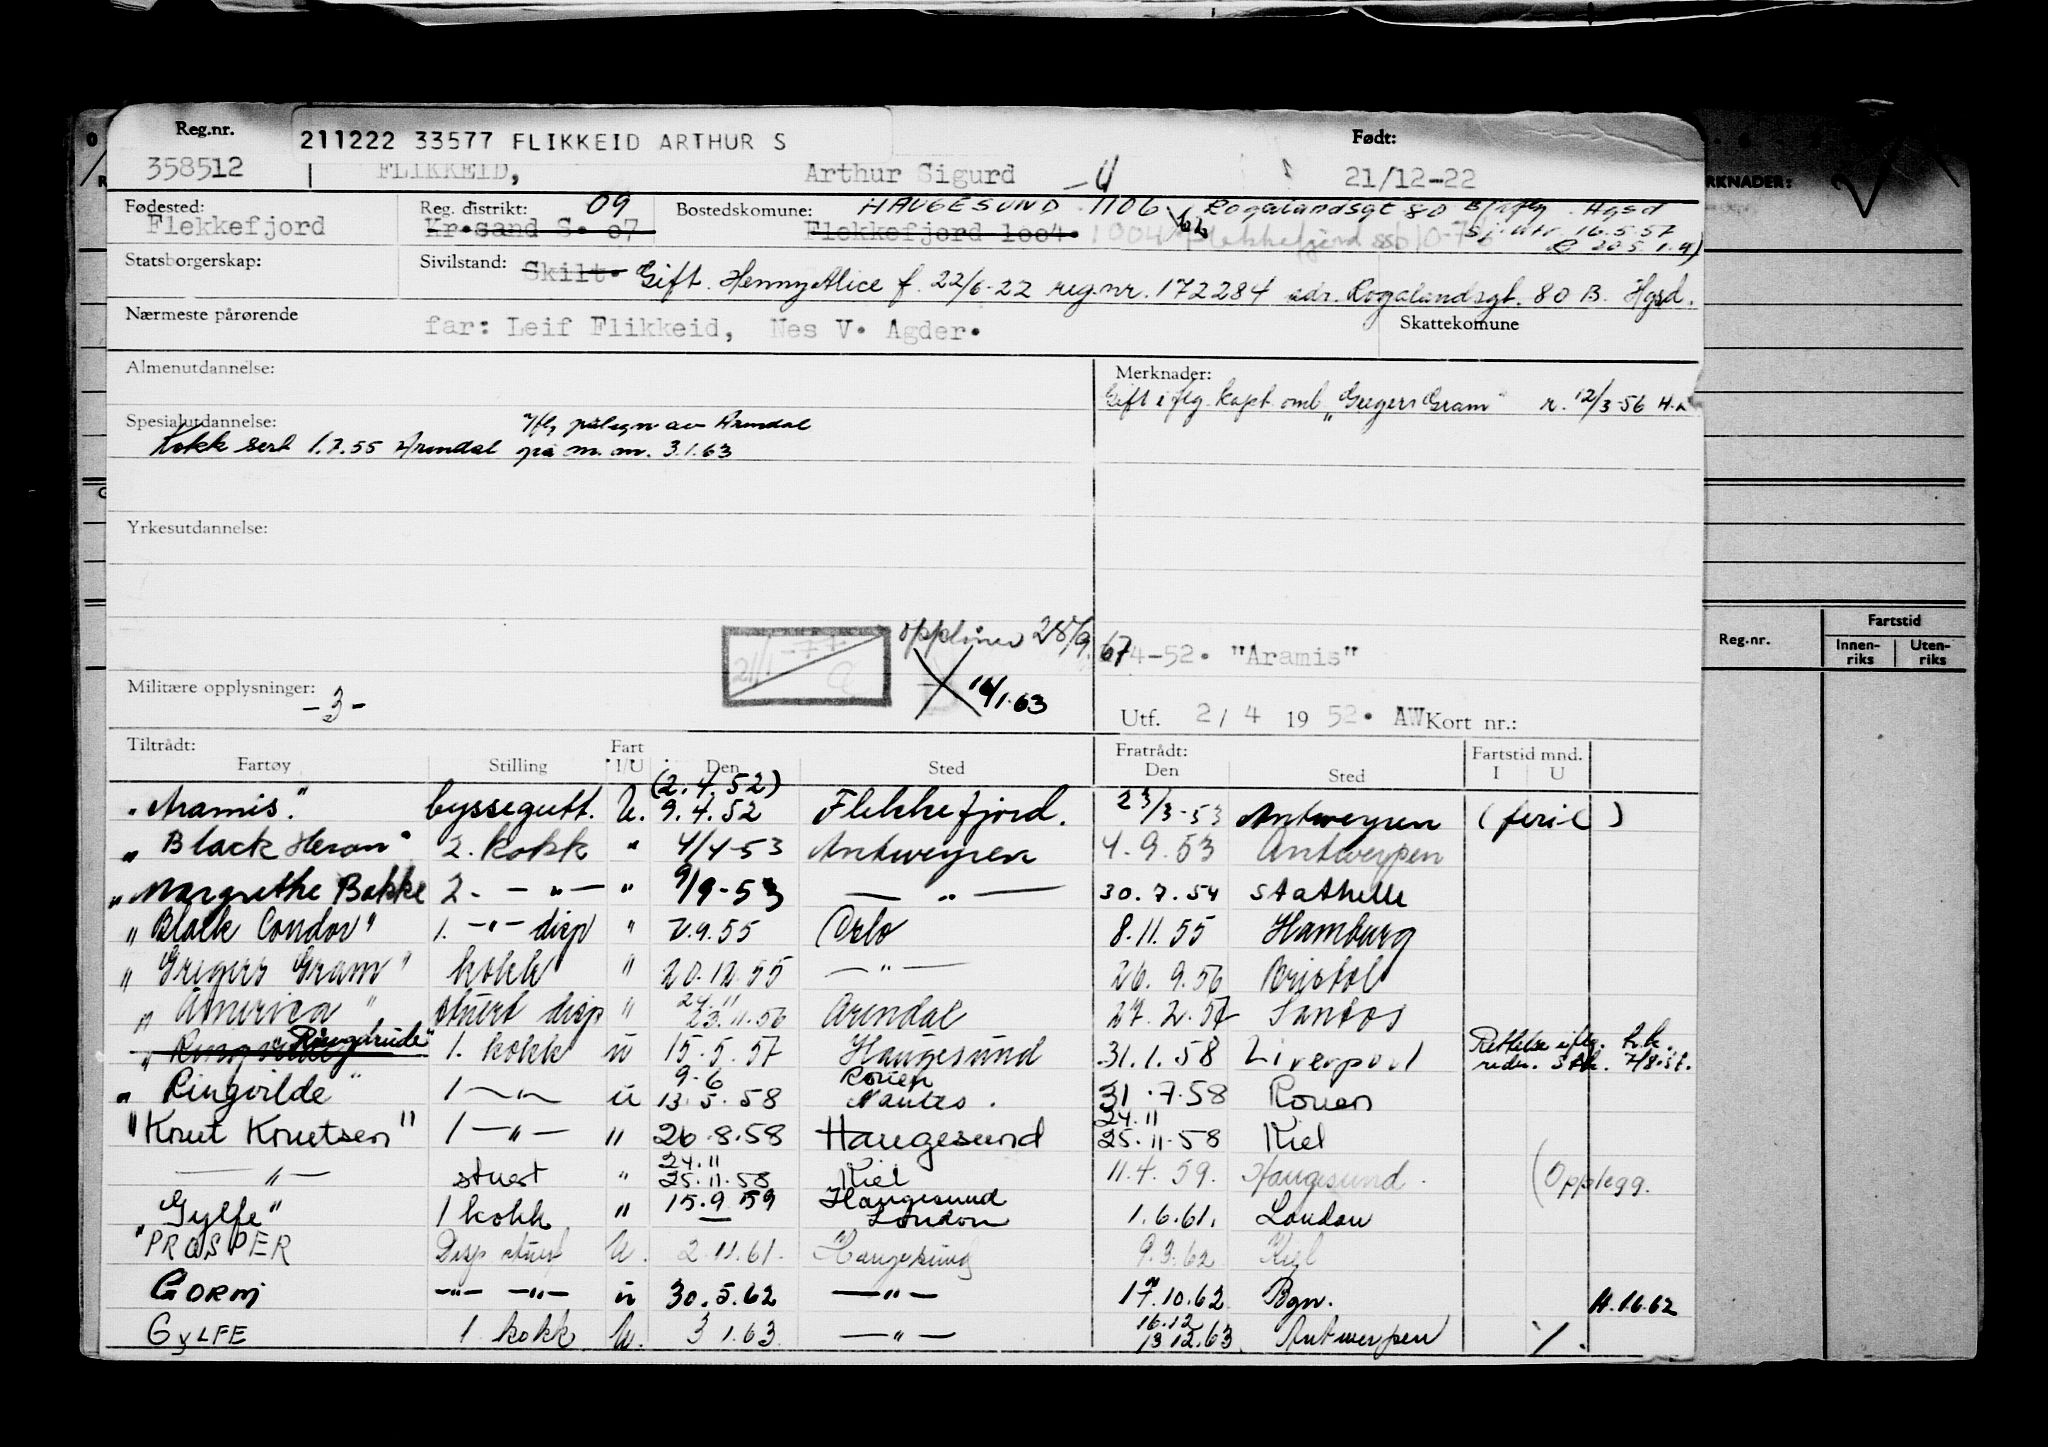 Reg.nr. 211222 33577 FLIKKEID ARTHUR S Født:
358512 FLIKKEID, Arthur Sigurd 21/12-22
Fødested: Reg. distrikt: 09 Bostedskomune: HAUGESUND 1106 Rogalandsgt 80 B
Flekkefjord Kr.sand S. 07 Flekkefjord 1004. 1004 16.5.57
Statsborgerskap: Sivilstand: Skilt. Gift. Henny Alice f. 22/6-22 reg.nr. 172284 adr. Rogalandsgt. 80 B. Hgsd.
Nærmeste pårørende far: Leif Flikkeid, Nes V. Agder. Skattekomune
Almenutdannelse: Merknader:
Gift iflg kapt. omb „Gregers Gram" 12/3-56
Spesialutdannelse: Iflg pålegn av Arendal
Kokk sert 1.7.55 Arendal på m.m. 3.1.63
Yrkesutdannelse:
28/9.67 4-52. "Aramis"
Militære opplysninger: -3- 14/1.63
Utf. 2/4 1952. AW Kort nr.:
Tiltrådt: Fart Fratrådt: Fartstid mnd.
Fartøy Stilling I/U Den Sted Den Sted I U
(2.4.52)
"Aramis." byssegutt. U. 9.4.52 Flekkefjord. 23/3-53 Antwerpen
„Black Heron" 2. kokk " 4/4-53 Antwerpen 4.9.53 Antwerpen
„Margrethe Bakke 2. — " — " 9/9-53 — " — 30.7.54 Stathelle
„Black Condor" 1. -"- disp " 7.9.55 Oslo 8.11.55 Hamburg
„Gregers Gram" kokk " 20.12.55 — " — 26.9.56 Bristol
24.11
„America" stuert disp " 23.11.56 Arendal 27.2.57 Santos
Ringdrude"
1. kokk u 15.5.57 Haugesund 31.1.58 Liverpool Rettelse iflg. 7/8-58.
9.6 Rouen
„Ringvilde" 1 — " — u 13.5.58 Nantes. 31.7.58 Rouen
24.11
"Knut Knutsen" 1 — " — " 26.8.58 Haugesund 25.11.58 Kiel
24.11
— " — stuert " 25.11.58 Kiel 11.4.59. Haugesund. (Opplegg.
"Gylfe" 1 kokk " 15.9.59 Haugesund
London 1.6.61. London
"PROSPER Disp stuert U. 2.11.61. Haugesund 9.3.62 Kiel
GORM -"- -"- u 30.5.62 — " — 17.10.62 Bgn. H.16.62
16.12
GYLFE 1 kokk U. 3 1.63. — " — 13 12.63. Antwerpen
RKNADER:
Reg.nr. Fartstid
Innen-riks Uten-riks